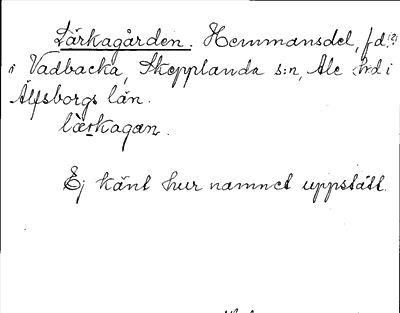 Lärkagården. Hemmansdel, f.d. (?)
i Vadbacka, Skepplanda s:n, Ale hd i
Älfsborgs län.
lärkagan.
Ej känt hur namnet uppstått.